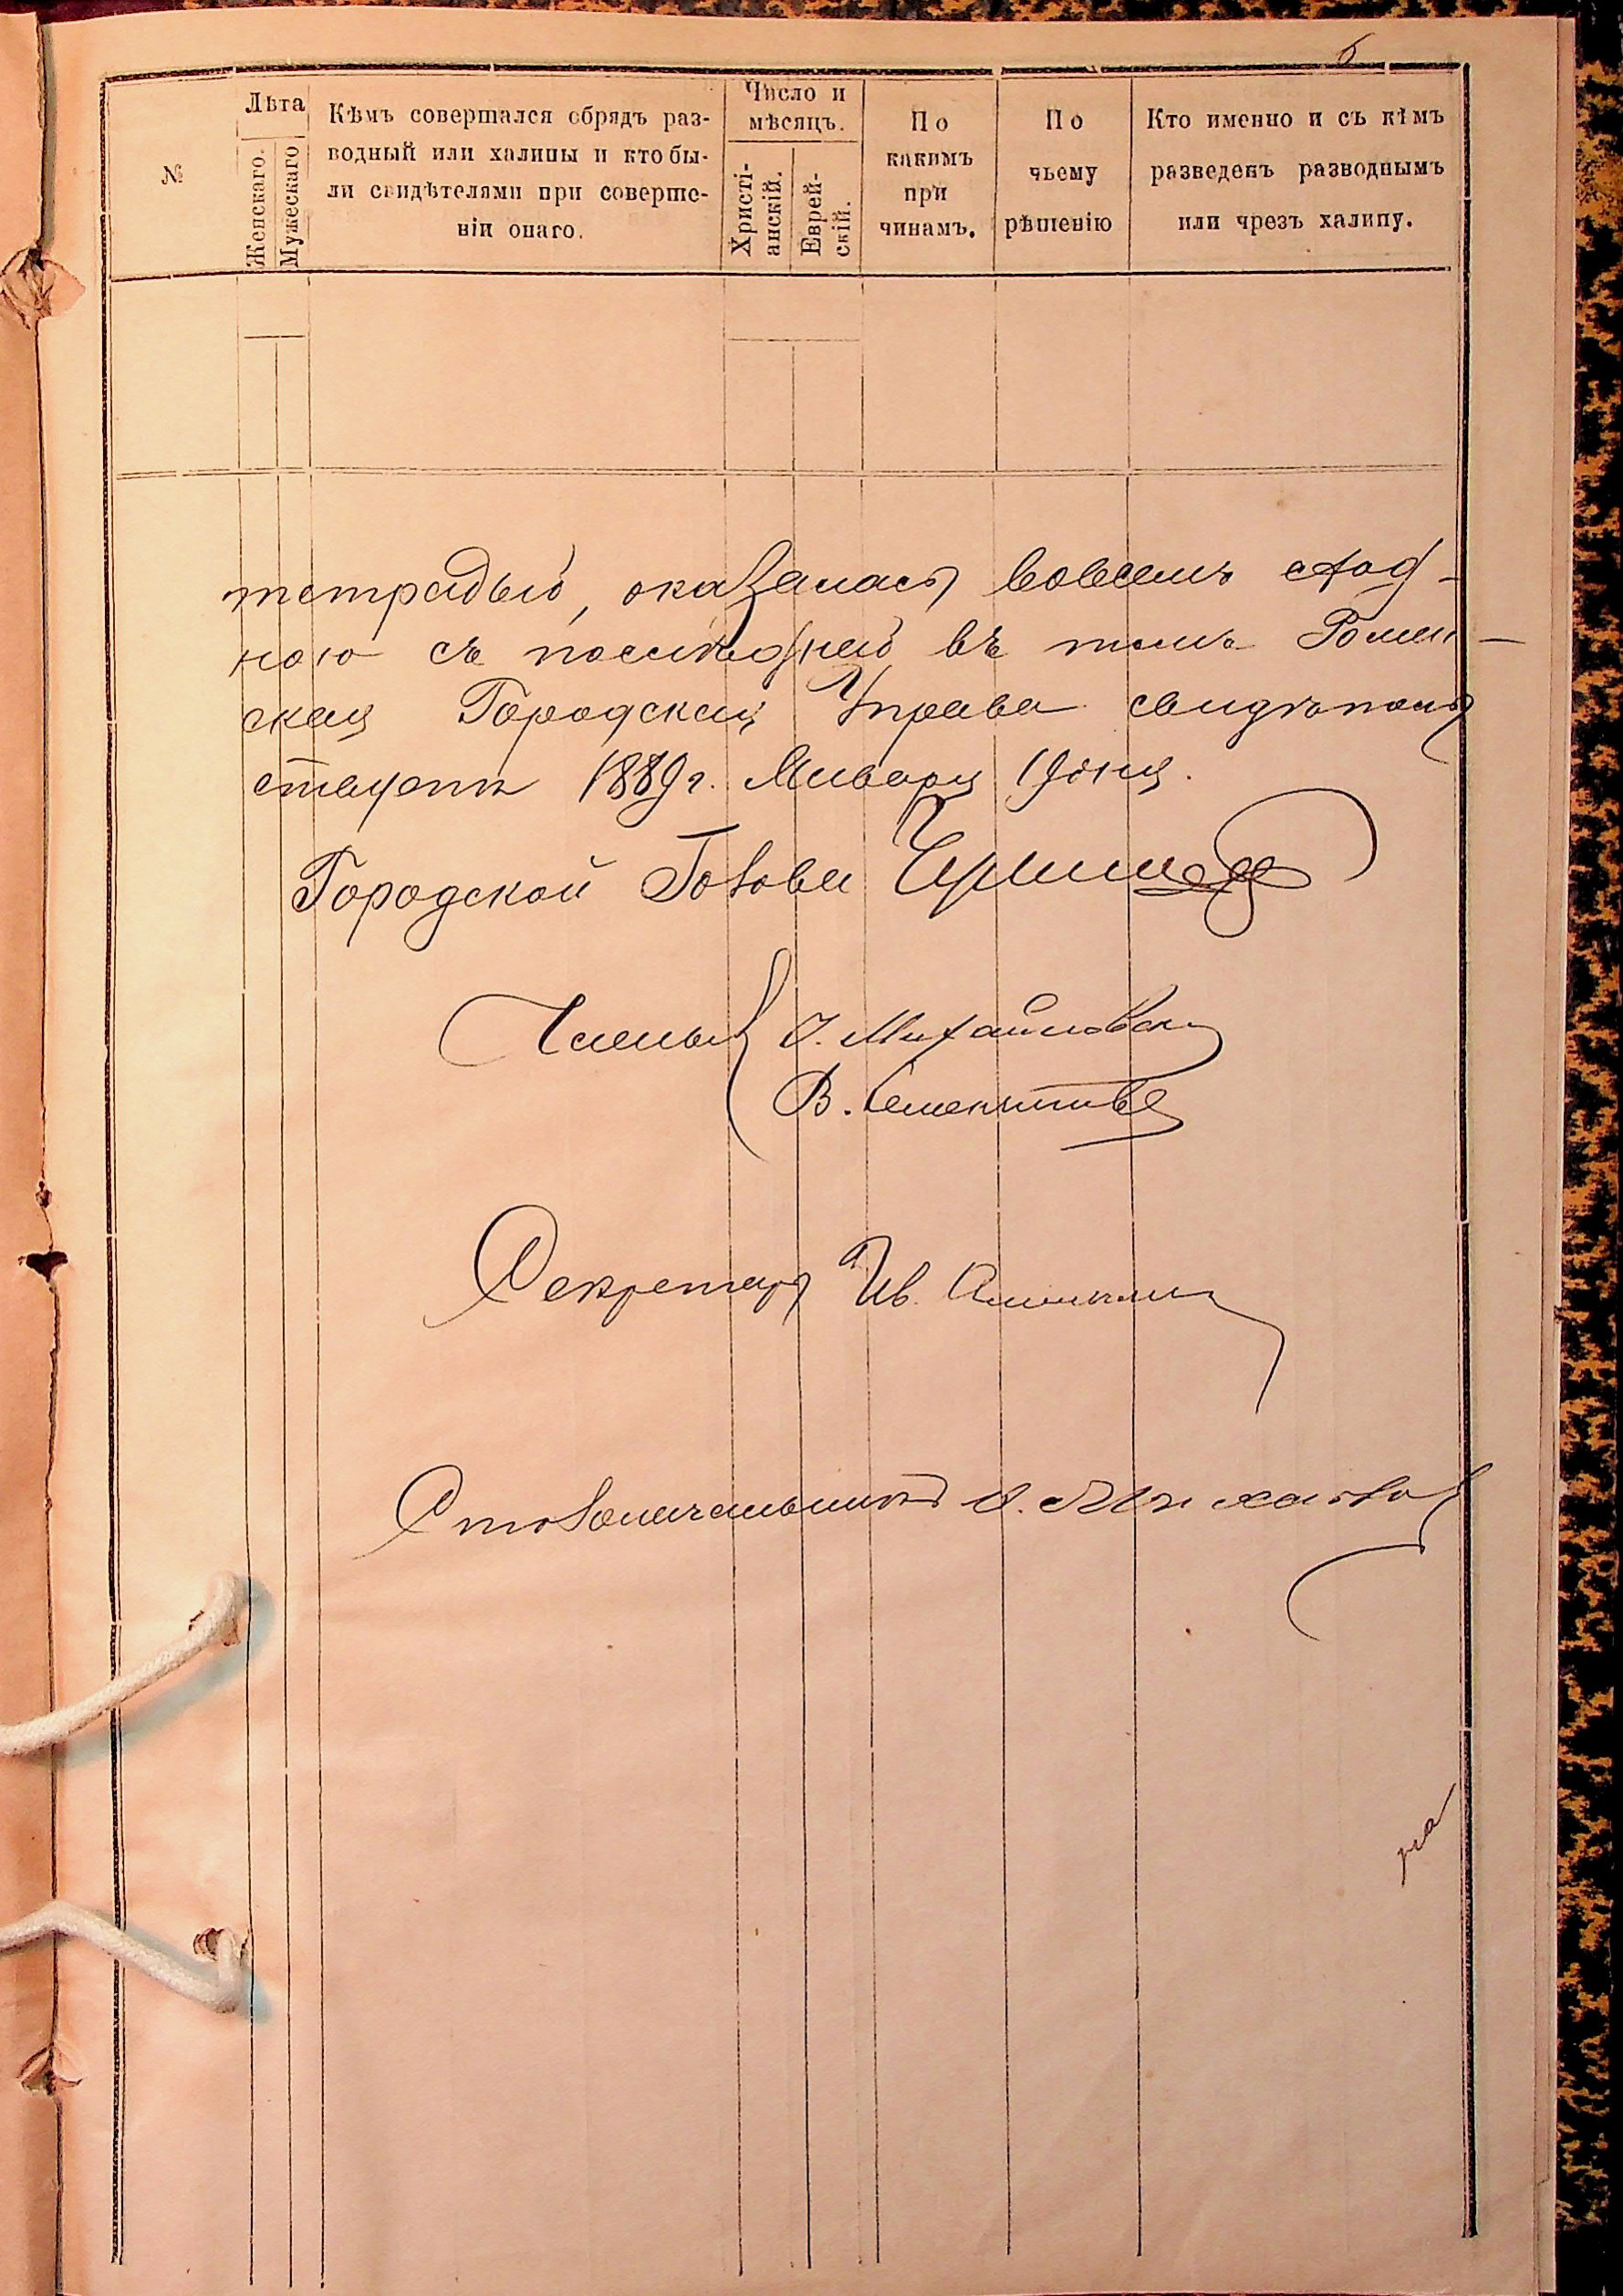 6
№
Лѣта
Женскаго.
Мужескаго
Кѣмъ совершался обрядъ раз-
водный или халицы и кто бы-
ли свидѣтелями при соверше-
ніи онаго.
Число и
мѣсяцъ.
Христі-
анскій.
Еврей-
скій.
По
какимъ
при
чинамъ.
По
чьему
рѣшенію
Кто именно и съ кѣмъ
разведенъ разводнымъ
или чрезъ халицу.
тетрадью, оказалась вовсемъ сход-
ною съ последней въ томъ Ромен-
ская Городская Управа свидѣтель
ствуетъ 1889 г. Января 19 дня.
Городской Голова
Члены И. Михайловск
В.
Секретарь Ив.
Столоначальникъ